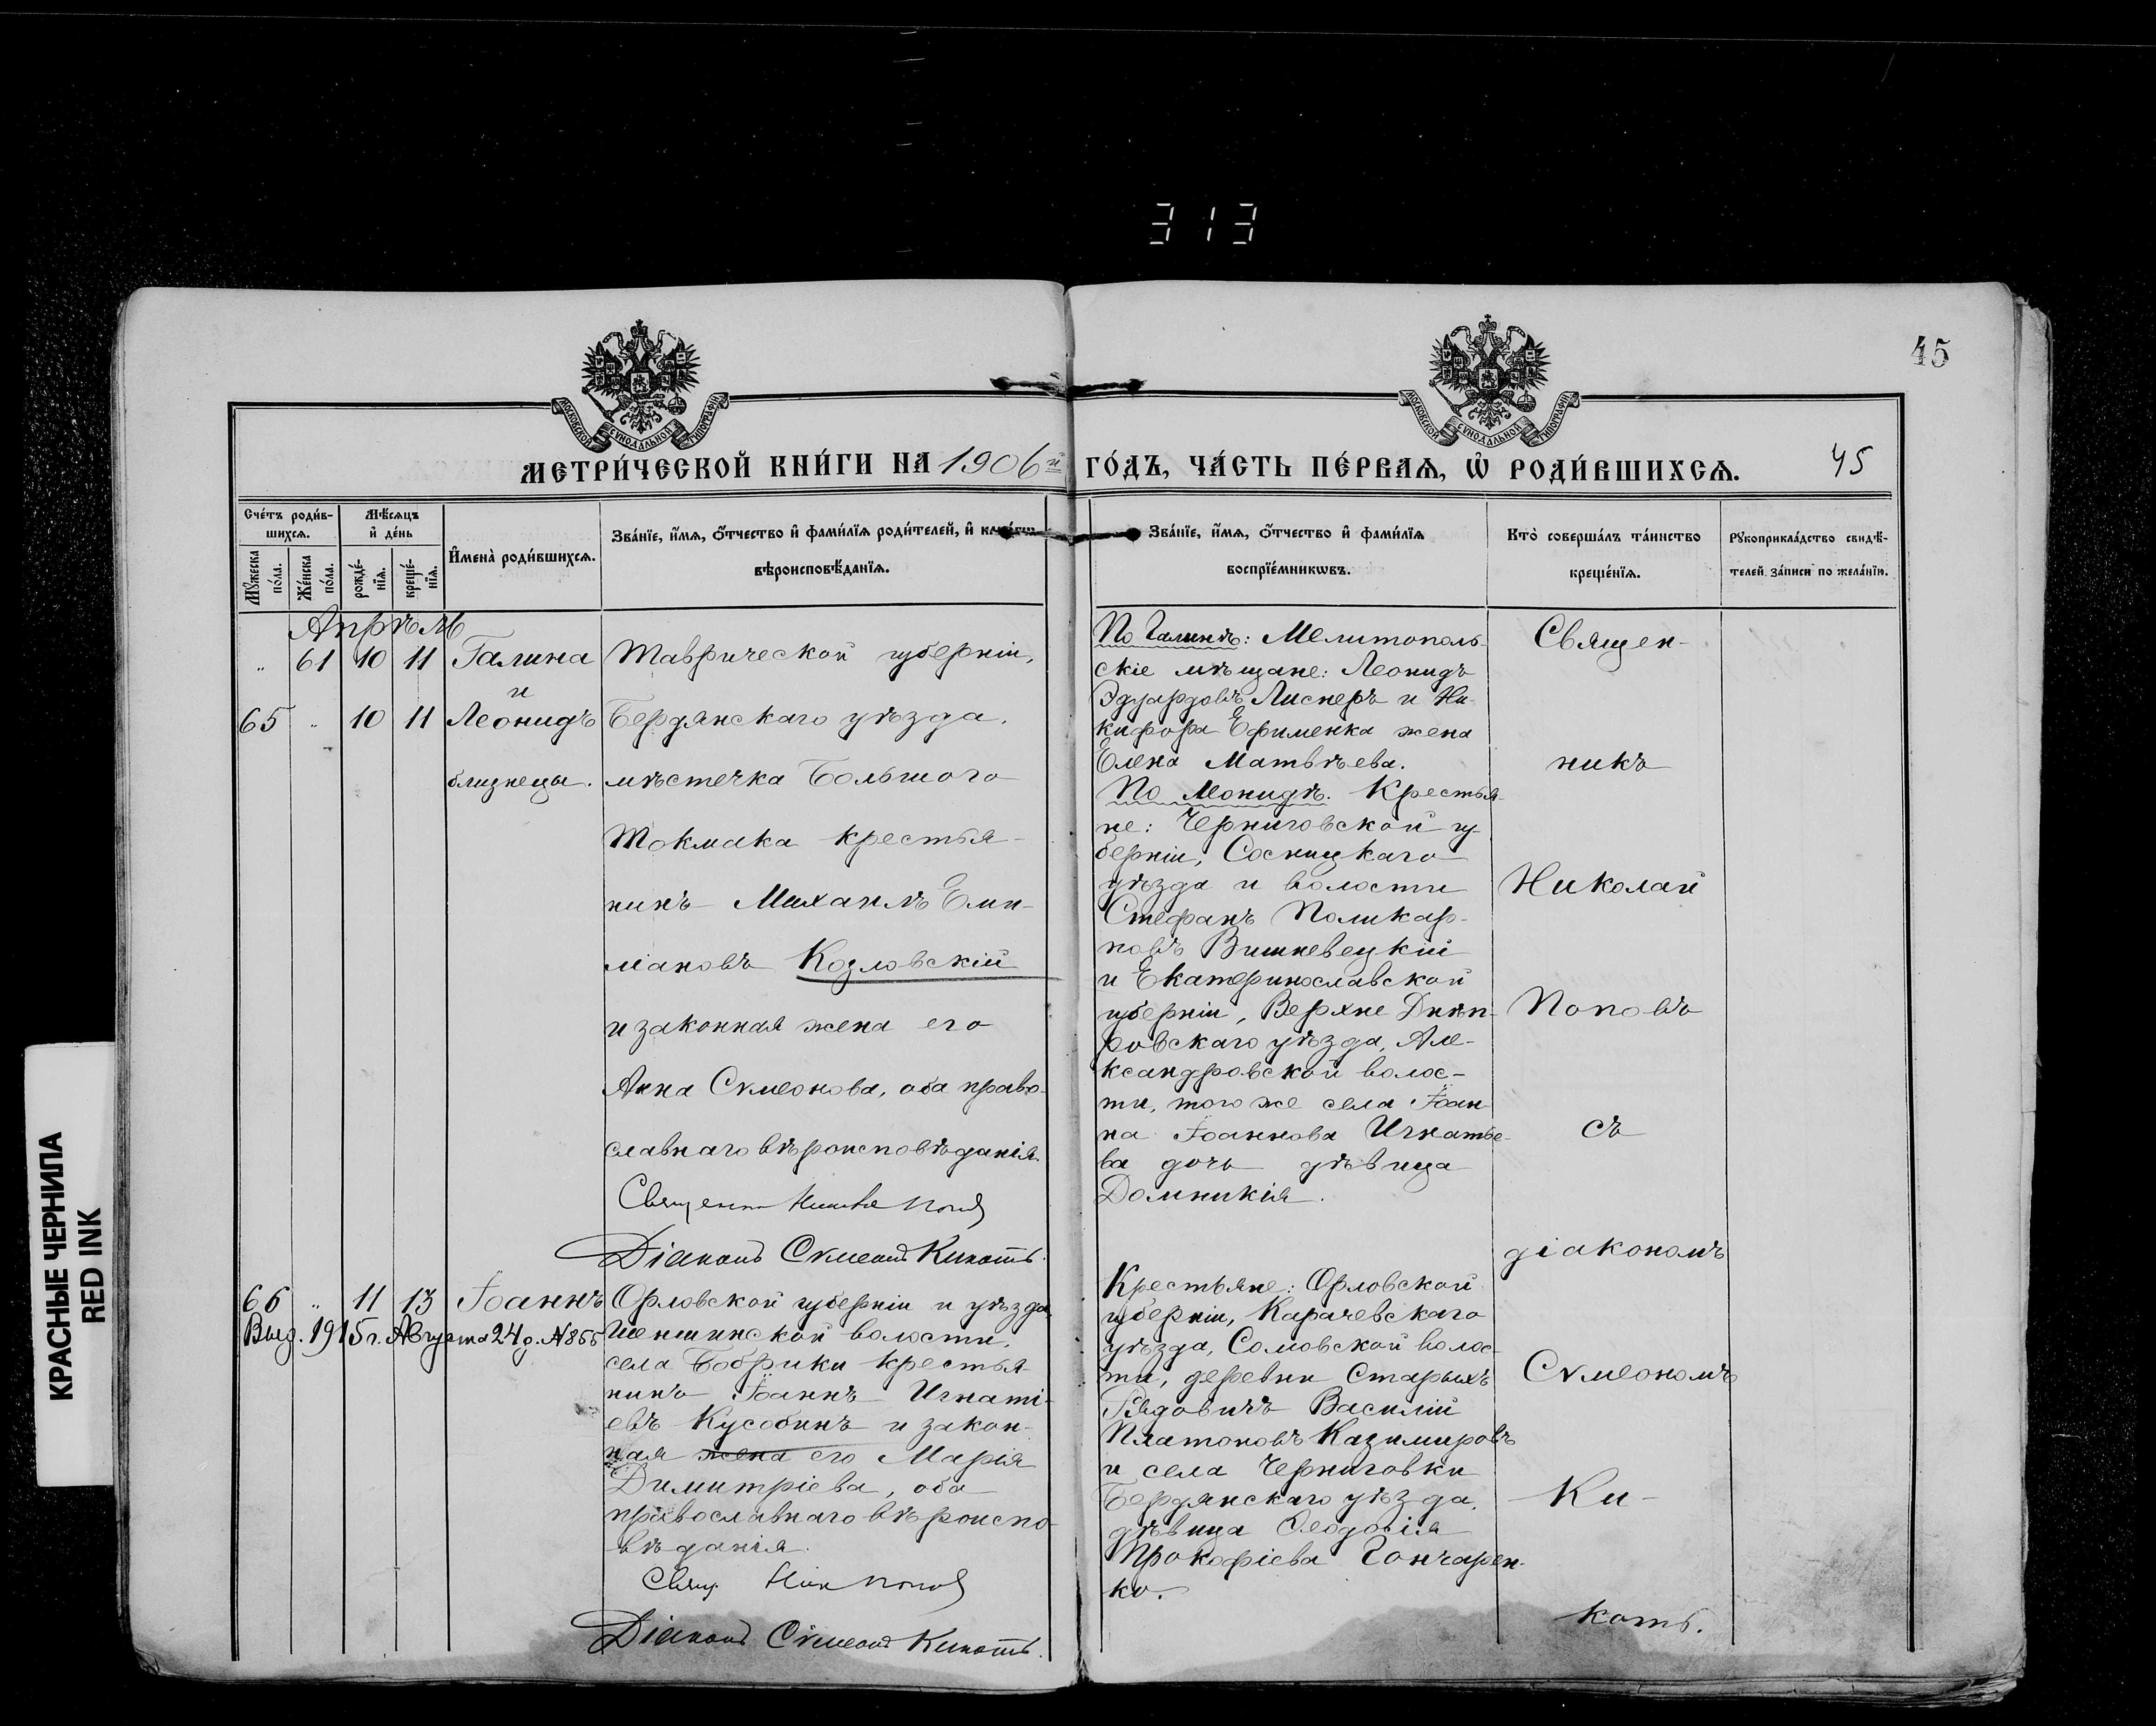 313
45
МОСКОВСКОЙ СѴНОДАЛЬНОЙ ТИПОГРАФІИ
МОСКОВСКОЙ СѴНОДАЛЬНОЙ ТИПОГРАФІИ
МЕТРИ́ЧЕСКОЙ КНИ́ГИ НА 1906й ГО́ДЪ, ЧА́СТЬ ПЕ́РВАѦ, Ѡ РОДИ́ВШИХСѦ.
45
Сче́тъ роди́в-
шихсѧ.
Мꙋ́жеска по́ла.
Же́нска по́ла.
Мѣ́сѧцъ и҆ де́нь
рожде́-нїѧ.
креще́-нїѧ.
И҆мена̀ роди́вшихсѧ.
Зва́нїе, и҆́мѧ, ѻ҆́тчество и҆ фами́лїѧ роди́телей, и҆
вѣроисповѣ́данїѧ.
Зва́нїе, и҆́мѧ, ѻ҆́тчество и҆ фами́лїѧ
воспрїе́мникѡвъ.
Кто̀ соверша́лъ та́инство
креще́нїѧ.
Рꙋкоприкла́дство свидѣ́-
телей за́писи по жела́нїю.
Апрѣль
„ 61 10 11 Галина
и
65 „ 10 11 Леонидъ
близнецы.
Таврической губерніи,
Бердянскаго уѣзда,
мѣстечка Большого
Токмака крестья-
нинъ Михаилъ Еми-
ліановъ Козловскій
и законная жена его
Анна Сѵмеонова, оба право-
славнаго вѣроисповѣданія.
Діаконъ Сѵмеонъ Кикоть.
По Галинѣ: Мелитополь-
скіе мѣщане: Леонидъ
Эдуардовъ Лиснеръ и Ни-
кифора Ефименка жена
Елена Матвѣева.
По Леонидѣ. Крестья-
не: Черниговской гу-
берніи, Сосницкаго
уѣзда и волости
Стефанъ Поликар-
повъ Вишневецкій
и Екатеринославской
губерніи, Верхне Днѣп-
ровскаго уѣзда, Але-
ксандровской волос-
ти, того же села Іоан-
на Іоаннова Игнатье-
ва дочь дѣвица
Домникія.
Священ-
никъ
Николай
Поповъ
съ
діакономъ
Сѵмеономъ
Ки-
коть.
66 „ 11 13 Іоаннъ
Выд. 1915 г. Августа 24 д. № 866
Орловской губерніи и уѣзда,
волости,
села Бобрики крестья-
нинъ Іоаннъ Игнаті-
евъ Кусобинъ и закон-
ная жена его Марія
Димитріева, оба
православнаго вѣроиспо-
вѣданія.
Свящ. Ник Поповъ
Діаконъ Сѵмеонъ Кикоть.
Крестьяне: Орловской
губерніи, Карачевскаго
уѣзда, Сомовской волос-
ти, деревни Старыхъ
Василій
Платоновъ Казимировъ
и села Черниговки
Бердянскаго уѣзда,
дѣвица Ѳеодосія
Прокофіева Гончарен-
ко.
КРАСНЫЕ ЧЕРНИЛА
RED INK